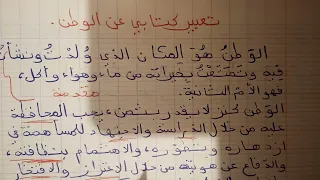 تعبير كتابي عن الوطن.
الوَطَنُ هُوَ المَكَان الذي وُلِدْتُ وَنَشَأْتُ
فِيهِ وَتَمَتَّعْتُ بِخَيْرَاتِهِ مِن مَاء وهَوَاء وأَكل،
فهو الأم الثانية.
مقدمة
الوَطن كنز لا يقدر بثمن، يجب المحافظة
عليه من خلال الدراسة والاجتهاد للمساهمة في
ازدهاره وتطوره، والاهتمام بنظافته،
والدفاع عن هويته من خلال الاعتزاز والافتخار